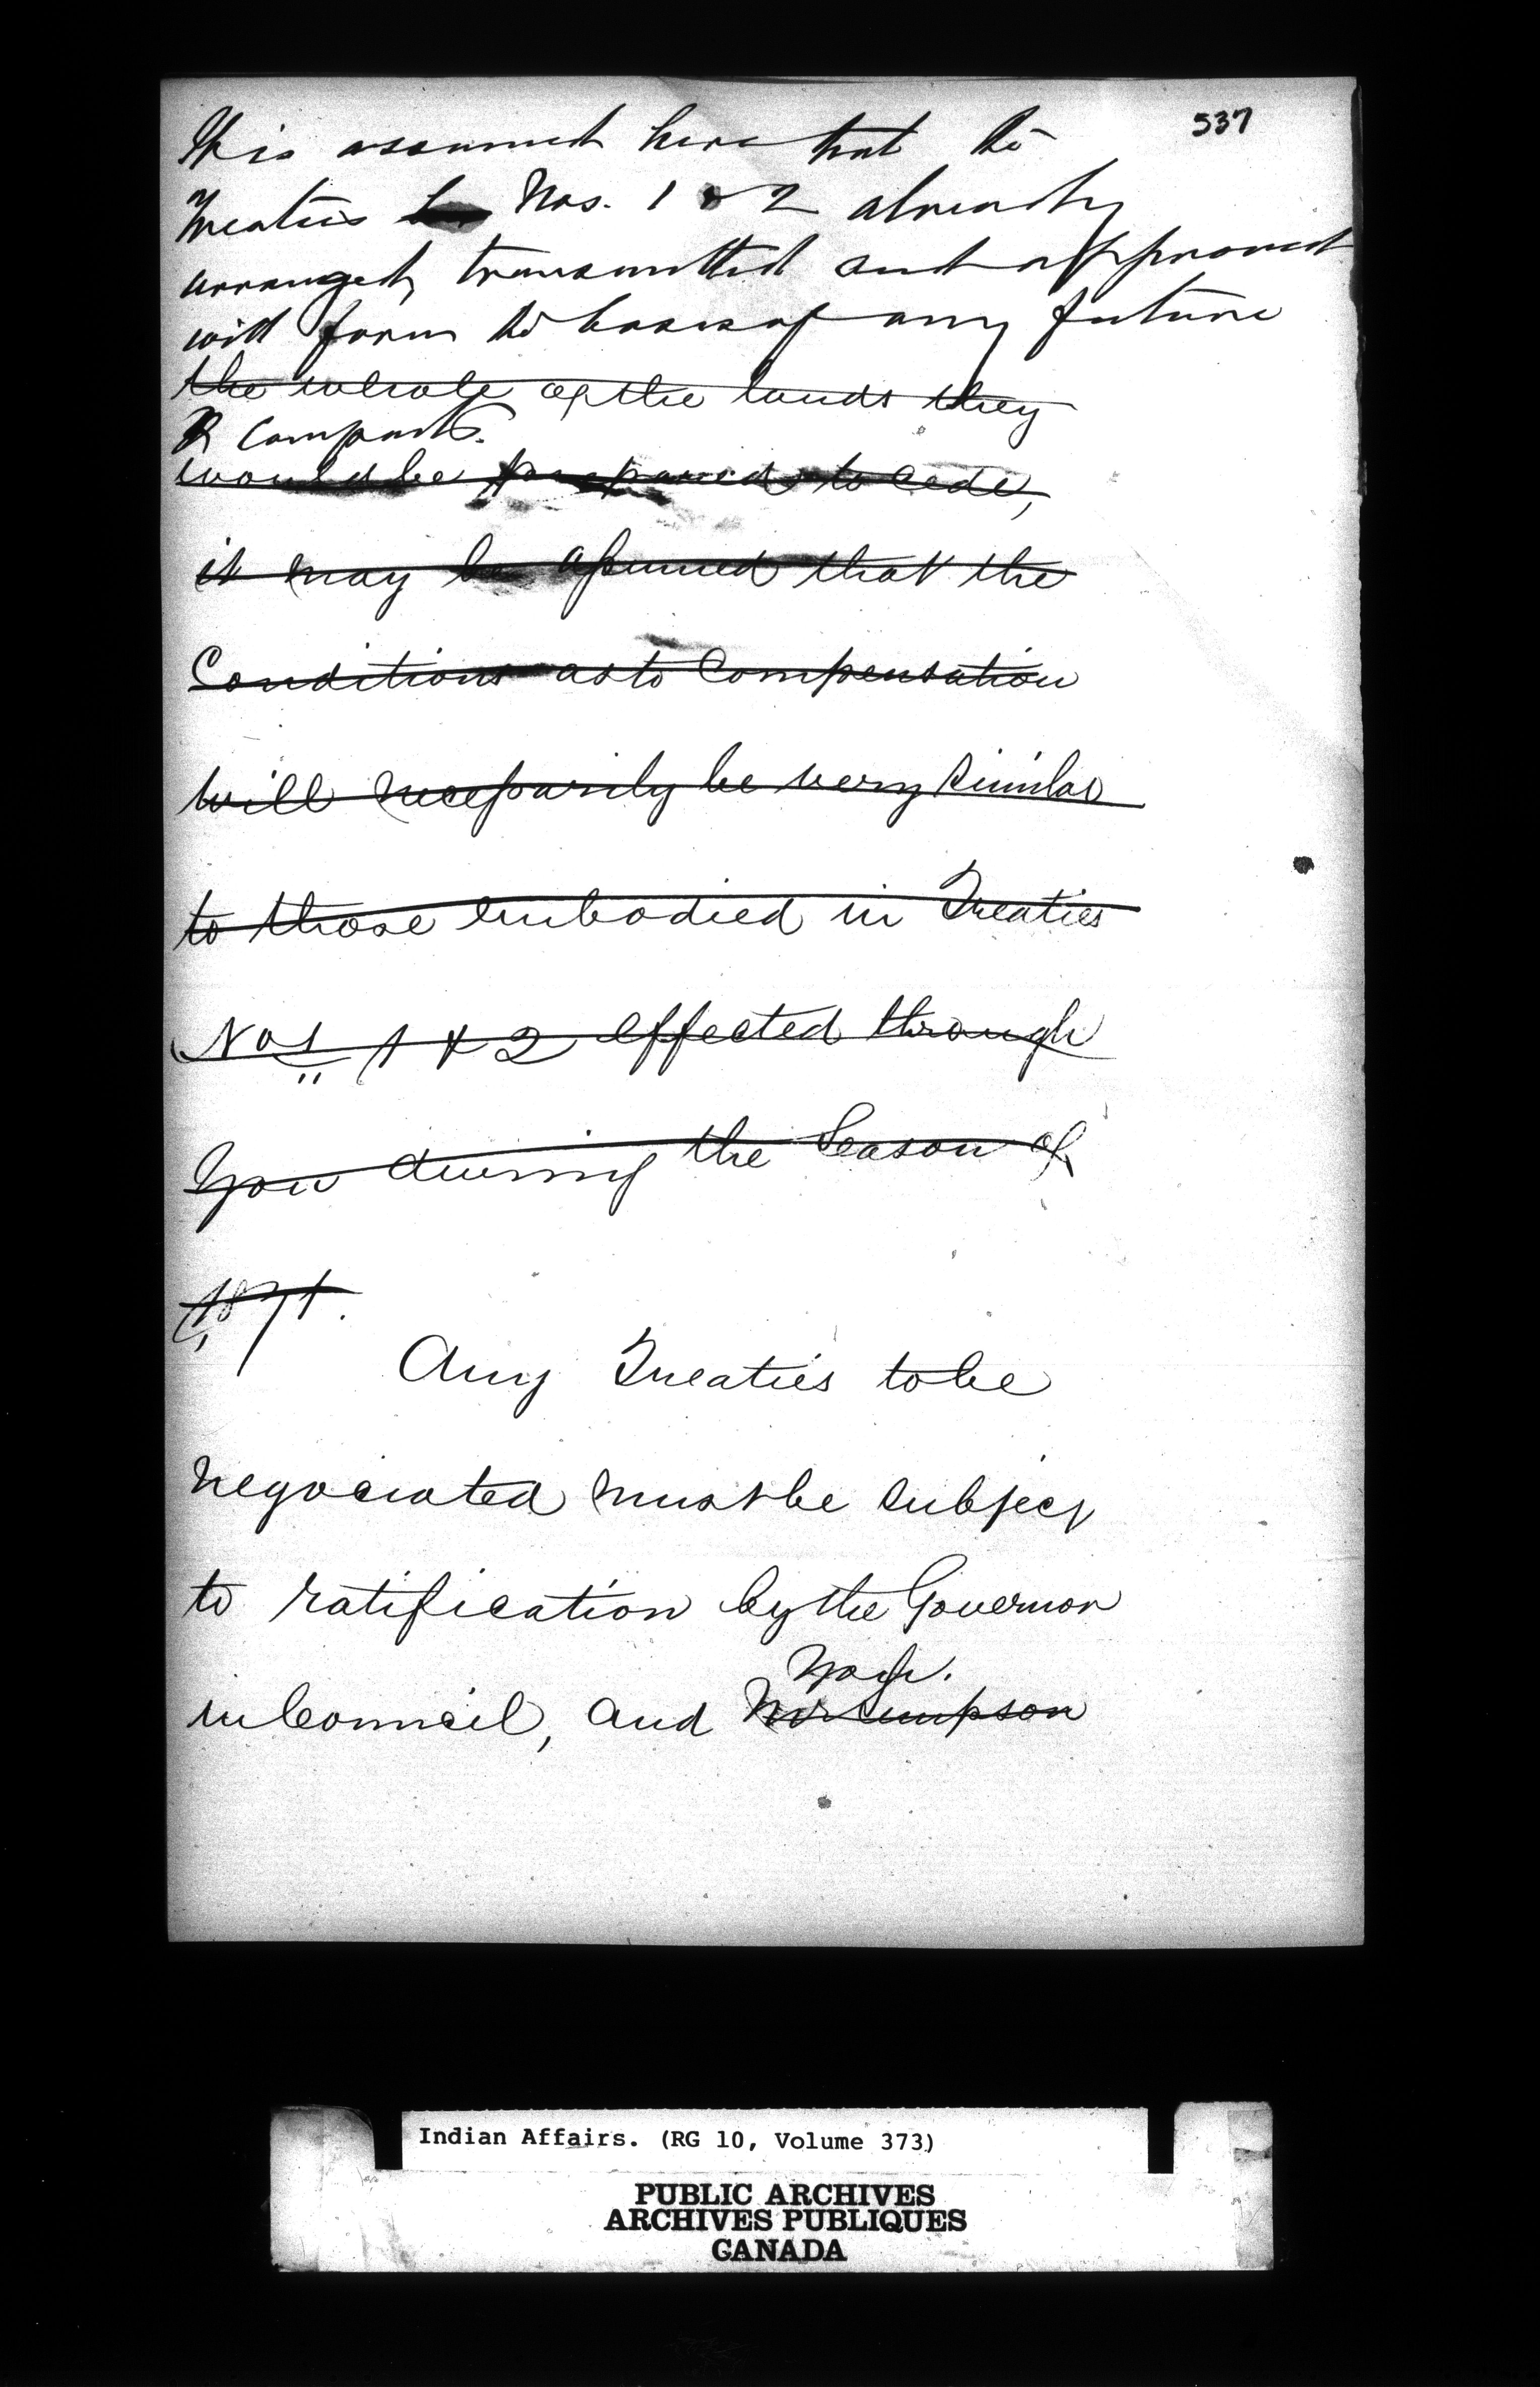 537
It is assumed here that the
Treaties Nos. 1 & 2 already
arranged, transmitted and approved
will form the basis of any future
the whole of the lands they
Compacts.
would be prepared to cede,
it may be assumed that the
Conditions as to Compensation
will necessarily be very similar
to those embodied in Treaties
Nos 1 & 2 effected through
You during the Season of
1871.
Any Treaties to be
negociated must be subject
to ratification by the Governor
You.
in Council, and Mr Simpson
Indian Affairs. (RG 10, Volume 373)
PUBLIC ARCHIVES
ARCHIVES PUBLIQUES
CANADA